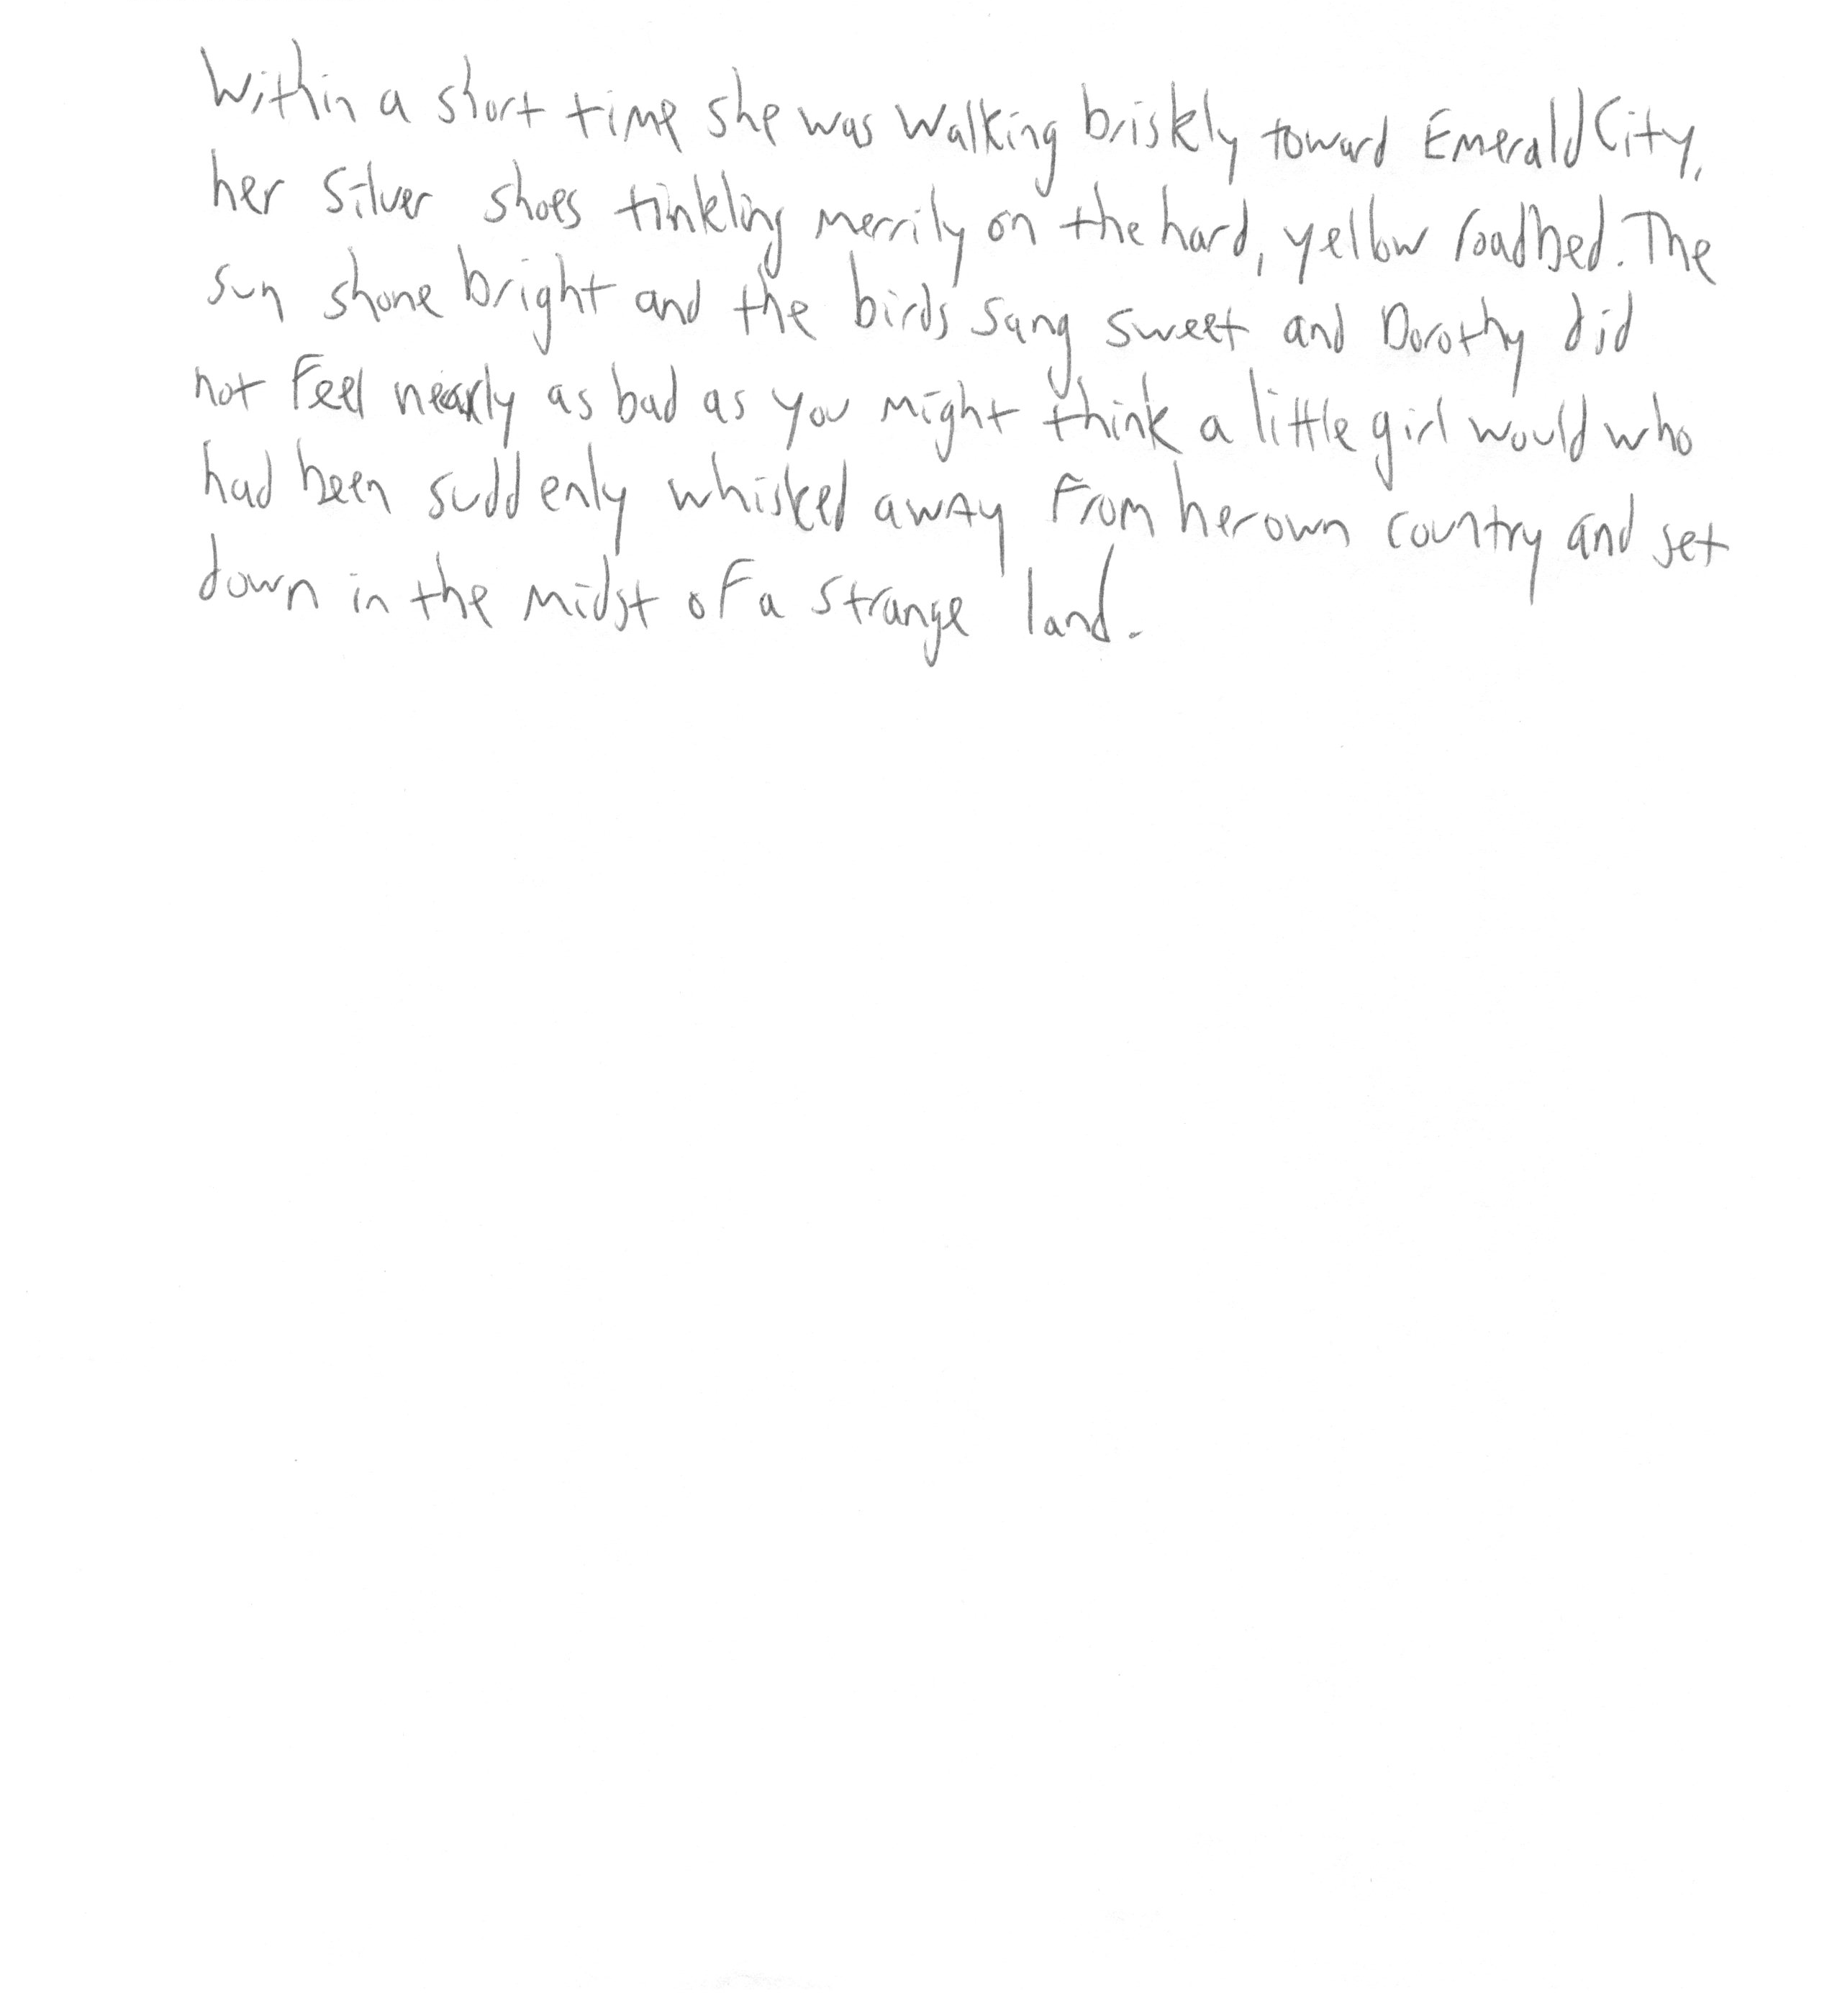 Within a short time she was walking briskly toward Emerald City,
her silver shoes tinkling merrily on the hard, yellow roadbed. The
sun shone bright and the birds sang sweet and Dorothy did
not feel nearly as bad as you might think a little girl would who
had been suddenly whisked away from her own country and set
down in the midst of a strange land.